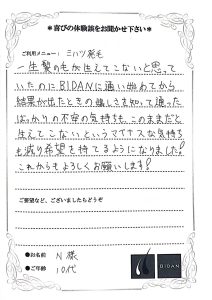 ＊喜びの体験談をお聞かせ下さい＊
ご利用メニュー：ミハツ発毛
一生髪の毛が生えてこないと思って
いたのにBIDANに通い始めてから
結果が出たときの嬉しさを知って通った
ばっかりの不安の気持ちも、このままだと
生えてこないというマイナスな気持ち
も減り希望を持てるようになりました!
これからもよろしくお願いします!
ご要望など、ございましたらどうぞ
●お名前 N様
●ご年齢 10代
BIDAN